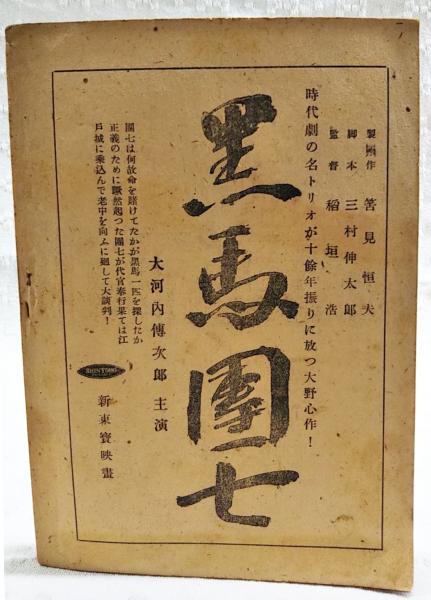 製作 筈見恒夫
脚本 三村伸太郎
監督 稲垣浩
時代劇の名トリオが十餘年振りに放つ大野心作!
黒馬團七
大河內傳次郎 主演
團七は何故命を賭けてたかが黒馬一匹を探したか
正義のために蹶然起つた團七が代官奉行果ては江
戸城に乘込んで老中を向ふに廻して大談判!
SHINTOHO
新東寶映畫